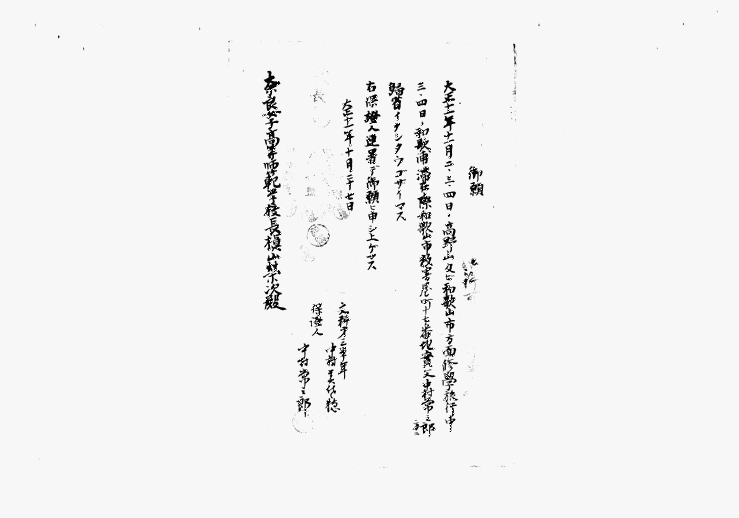 御願
大正十一年十一月二、三、四日、高野山及ビ和歌山市方面修學旅行中
三、四日、和歌浦滞在ノ際和歌山市教書屋町十七番地實父中村常三郎
歸省イタシタウゴザイマス
右保證人連署デ御願ヒ申シ上ゲマス
大正十一年十月二十七日
文科第三學年
中村
保證人
中村常三郎
奈良女子高等師範学校長槇山榮次殿